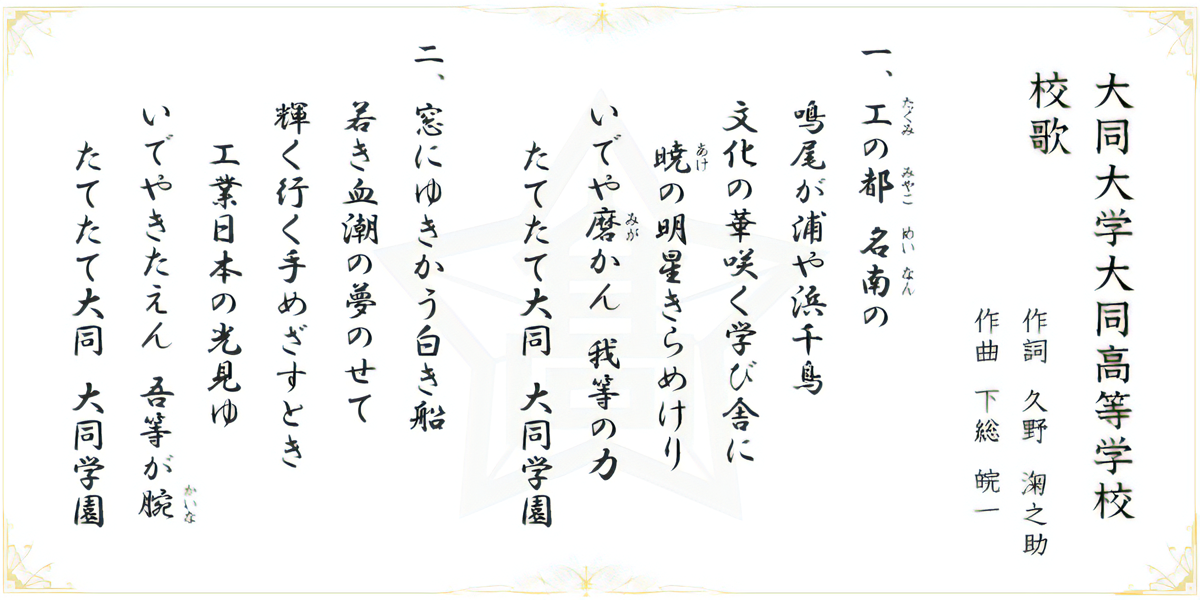 大同大学大同高等学校
校歌
作詞 久野 淘之助
作曲 下総 皖一
一、工の都 名南の
たくみ みやこ めい なん
鳴尾が浦や浜千鳥
文化の華咲く学び舎に
暁の明星きらめけり
あけ
いでや磨かん 我等の力
みが
たてたて大同 大同学園
二、窓にゆきかう白き船
若き血潮の夢のせて
輝く行く手めざすとき
工業日本の光見ゆ
いでやきたえん 吾等が腕
かいな
たてたて大同 大同学園